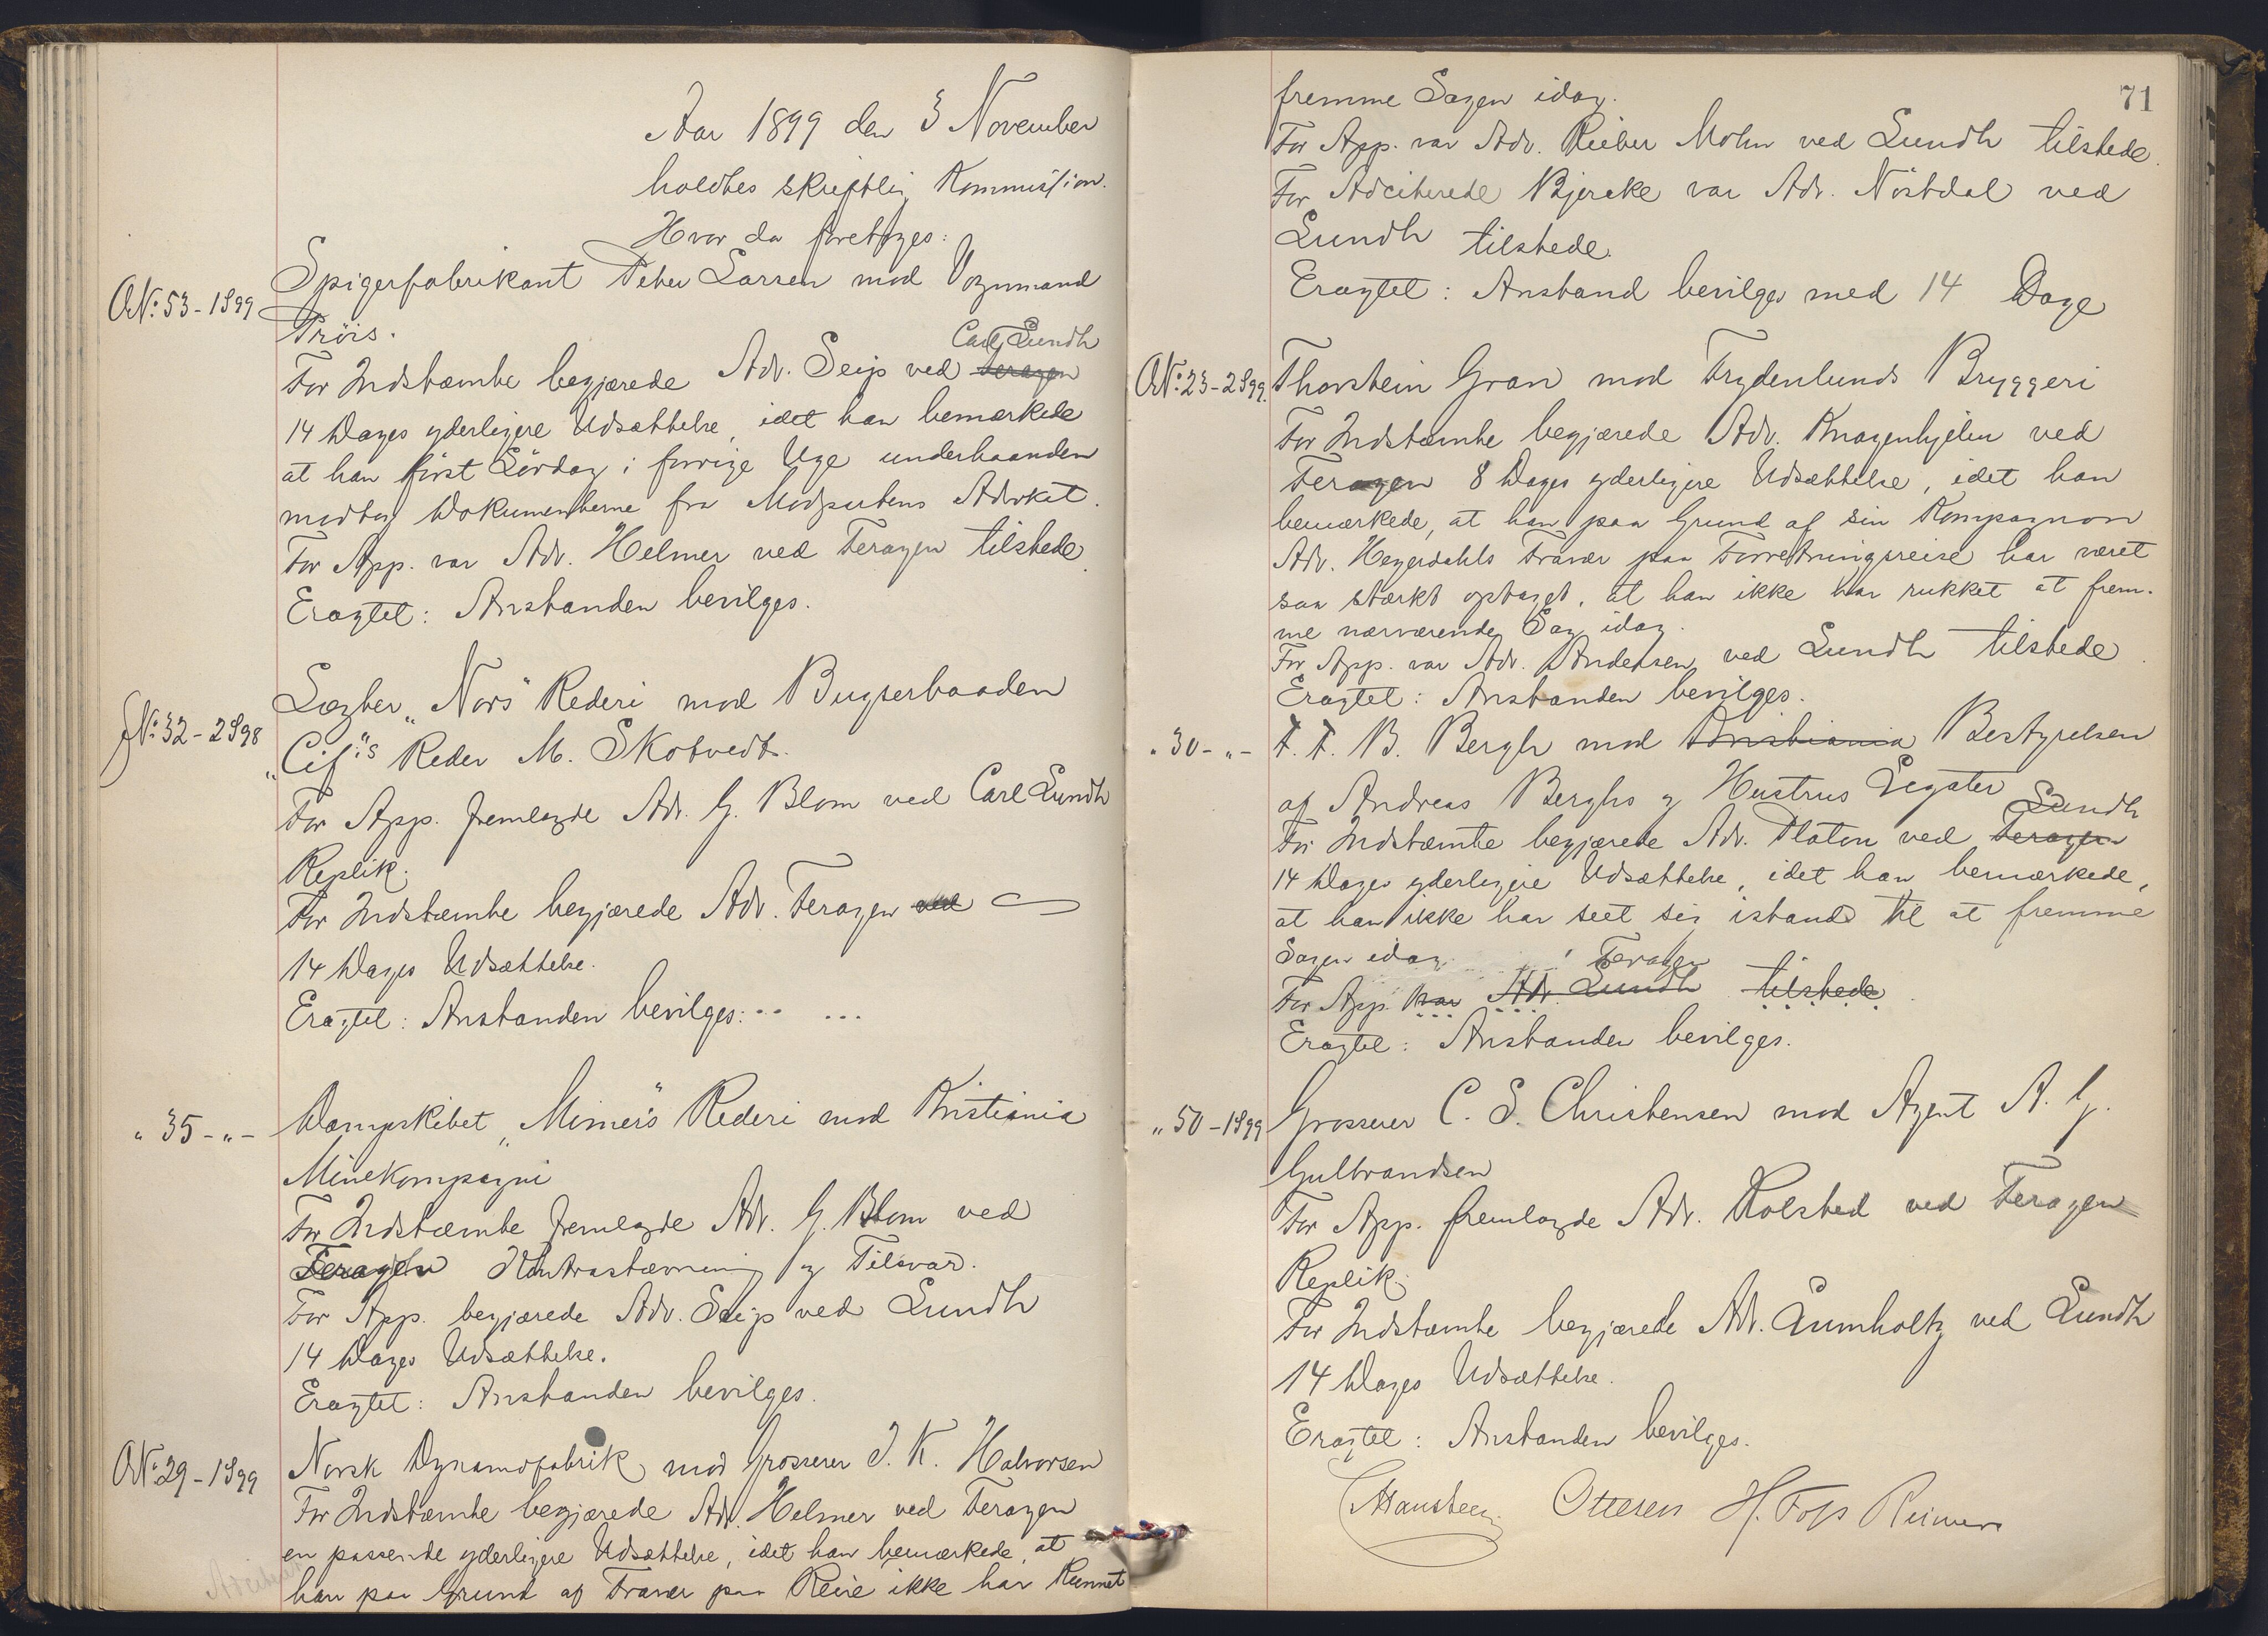 Aar 1899 den 3 November
holdtes skriftlig Kommission.
Hvor da foretoges:
No: 53 - 1899 Spigerfabrikant Peter Larsen mod Vognmand
Pröis.
Carl Lundh
For Indstæmte begjærede Adv. Seip ved Feragen
14 Dages yderligere Udsættelse, idet han bemærkede
at han först Lördag i forrige Uge underhaanden
modtog Dokumenterne fra Modpartens Advokat.
For App. var Adv. Helmer ved Feragen tilstede.
Eragtet: Anstanden bevilges.
No: 32 - 2898 Lægter „Nors" Rederi mod Bugserbaaden
„Cif"s Reder M. Skotvedt.
For App. fremlagde Adv. G. Blom ved Carl Lundh
Replik.
For Indstæmte begjærede Adv. Feragen ved
14 Dages Udsættelse.
Eragtet: Anstanden bevilges.
" 35 - " - Dampskibet „Mimer"s Rederi mod Kristiania
Minekompagni
For Indstæmte fremlagde Adv. G. Blom ved
Feragen Kontrastævning og Tilsvar.
For App. begjærede Adv. Seip ved Lundh
14 Dages Udsættelse.
Eragtet: Anstanden bevilges.
No: 29 - 1899 Norsk Dynamofabrik mod Grosserer J. K. Halvorsen
For Indstæmte begjærede Adv. Helmer ved Feragen
en passende yderligere Udsættelse, idet han bemærkede, at
han paa Grund af Fravær paa Reise ikke har kunnet
71
fremme Sagen idag.
For App. var Adv. Rieber Mohn ved Lundh tilstede.
For Adciterede Bjercke var Adv. Nöstdal ved
Lundh tilstede.
Eragtet: Anstand bevilges med 14 Dage
No: 23 - 2899. Thorstein Gran mod Frydenlunds Bryggeri
For Indstæmte begjærede Adv. Knagenhjelm ved
Feragen 8 Dages yderligere Udsættelse, idet han
bemærkede, at han paa Grund af sin Kompagnon
Adv. Heyerdahls Fravær paa Forretningsreise har været
saa stærkt optaget, at han ikke har rukket at frem-
me nærværende Sag idag.
For App. var Adv. Andersen ved Lundh tilstede.
Eragtet: Anstanden bevilges.
" 30 - " - F. F. B. Bergh mod Kristiania Bestyrelsen
af Andreas Berghs og Hustrus Legater
Lundh
For Indstæmte begjærede Adv. Platou ved Feragen
14 Dages yderligere Udsættelse, idet han bemærkede,
at han ikke har seet sig istand til at fremme
Sagen idag. Feragen
For App. var Adv. Lundh tilstede.
Eragtet: Anstanden bevilges.
" 50 - 1899 Grosserer C. S. Christensen mod Agent A. G.
Gulbrandsen
For App. fremlagde Adv. Kolsted ved Feragen
Replik.
For Indstæmte begjærede Adv. Lumholtz ved Lundh
14 Dages Udsættelse.
Eragtet: Anstanden bevilges.
Hansteen Ottesen H. Foss Reimers